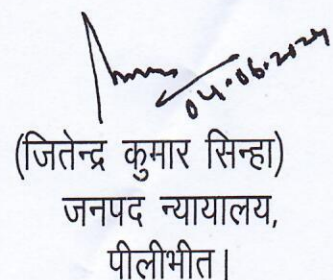 04.06.2024
(जितेन्द्र कुमार सिन्हा)
जनपद न्यायालय,
पीलीभीत।